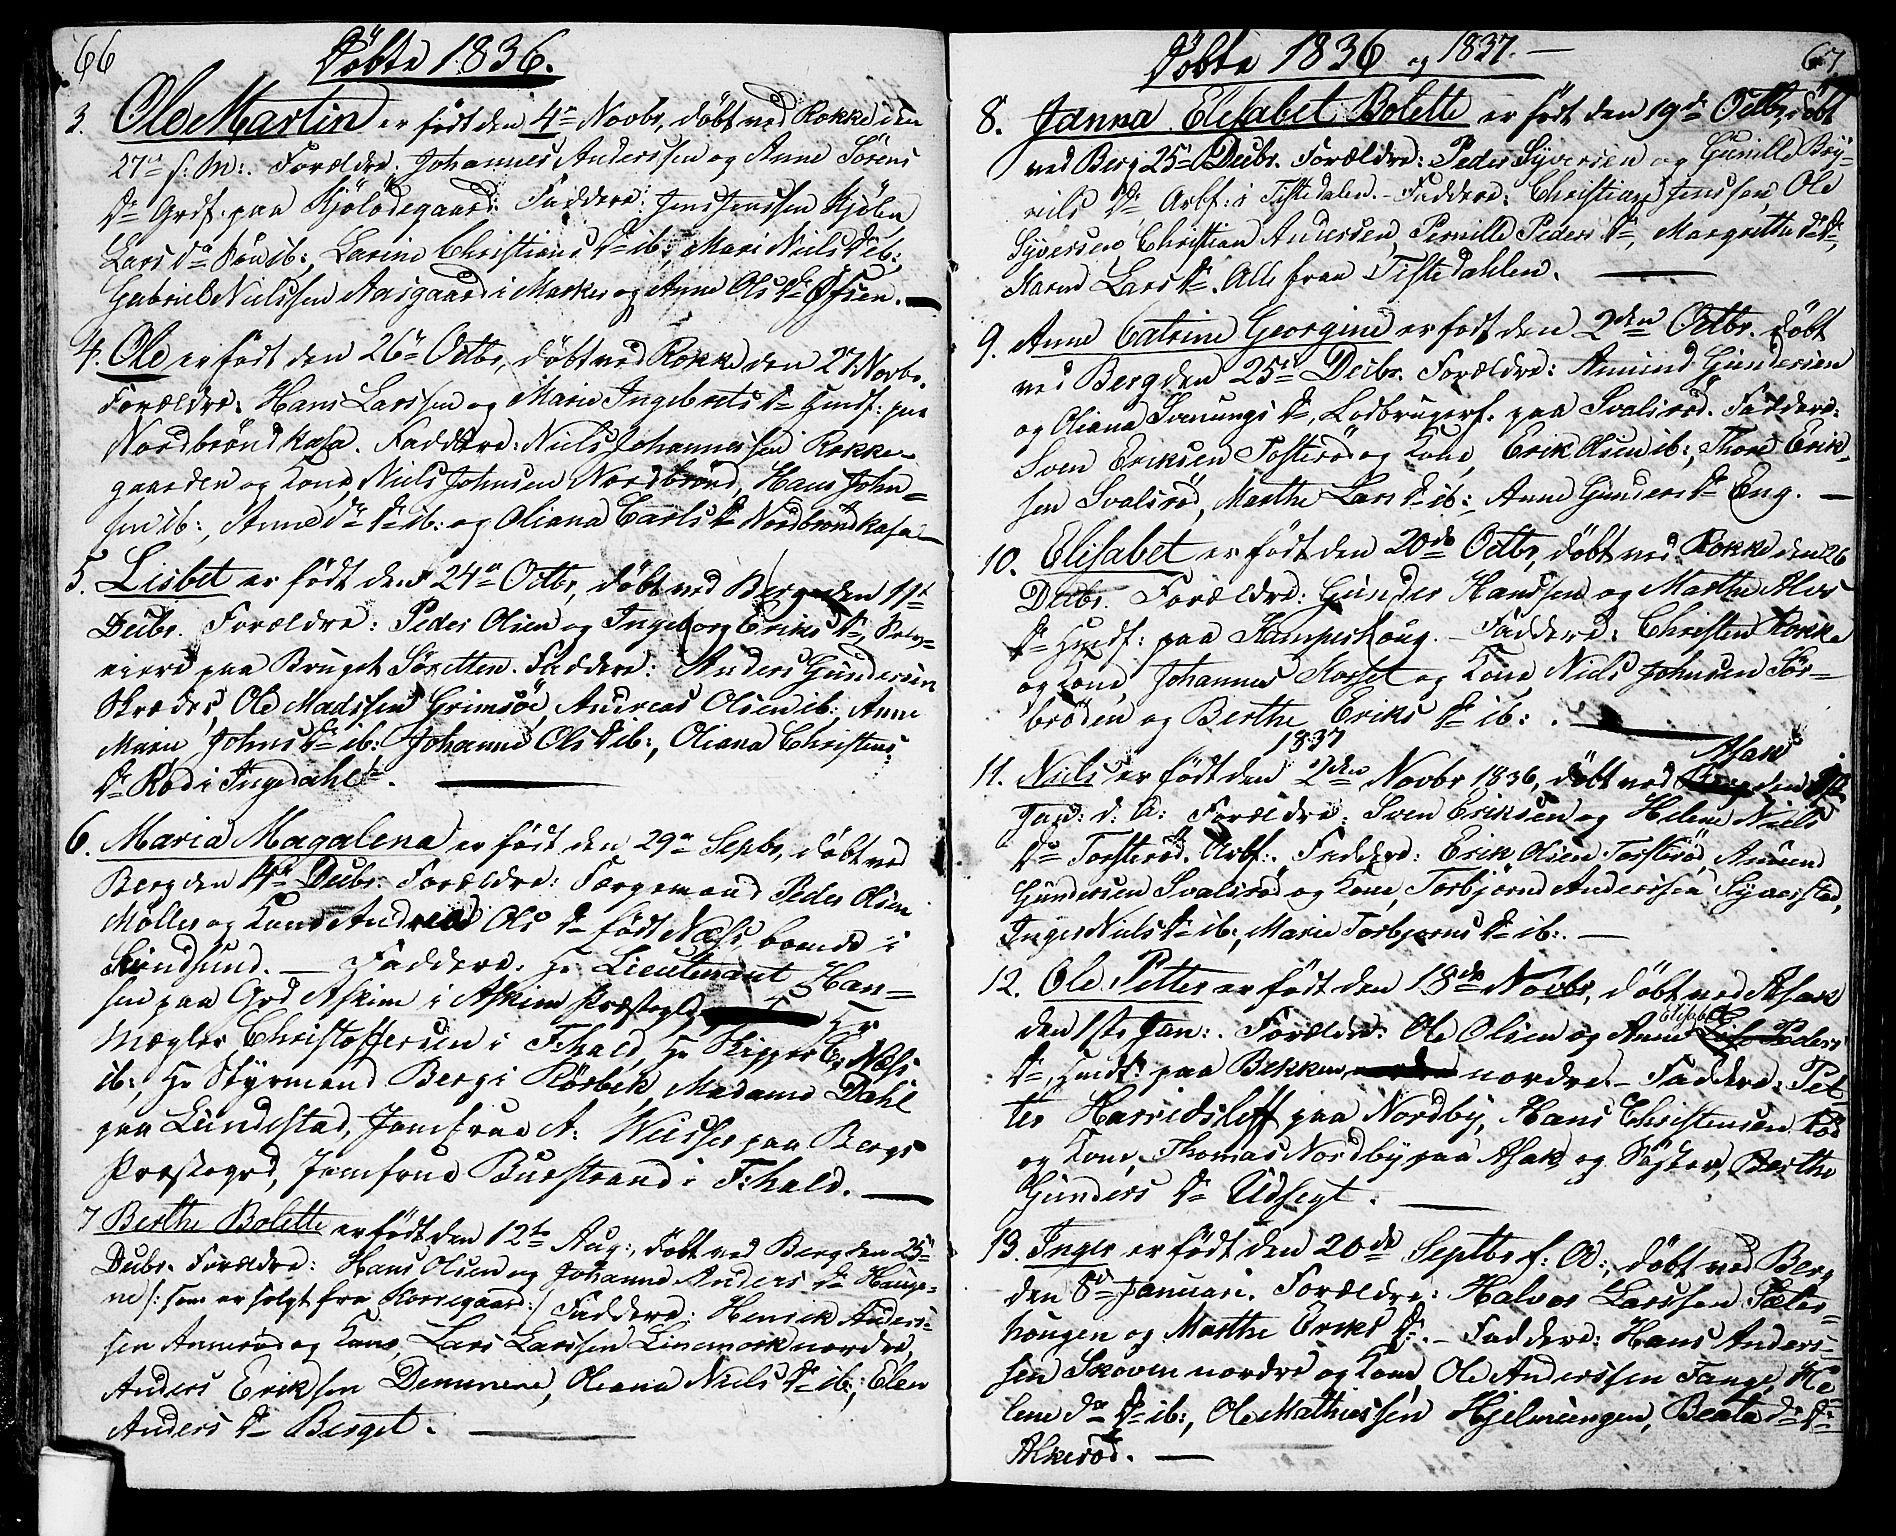 66
Döbte 1836.
3. Ole Martin er født den 4de Novbr, döbt ved Rokke den
27de s: M:. Forældre: Johannes Anderssen og Anne Sörens
Dr Grdf: paa Kjölödegaard. Faddere: Jens Jenssen Kjölen,
Lars do ib:, Larine Christians Dr ib:, Mari Niels Dr ib:,
Gabriel Nielssen Aasgaard i Marker og Anne Ols Dr Ofsen.
4. Ole er født den 26de Octbr, döbt ved Rokke den 27 Novbr.
Forældre: Hans Larssen og Marie Ingebrets Dr Husf: paa
Nordbröndkasa. Faddere: Niels Johannessen Rokke-
gaarden og Kone, Niels Johnsen Nordbrönd, Hans John=
sen ib:, Anne do Dr ib: og Oliana Carls Dr Nordbröndkasa
5. Lisbet er født den 24de Octbr, döbt ved Berg den 11te
Decbr. Forældre: Peder Olsen og Ingeborg Eriks Dr,
eiere paa Bruget Söretten. Faddere: Anders Gundersen
Skræder, Ole Madssen Grimsöe, Andreas Olsen ib:, Anne
Marie Johns Dr ib: Johanne Ols Dr ib:, Oliana Christens
Dr Röd i Ingedahl.
6. Maria Magalena er født den 29de Septbr, döbt ved
Berg den 14de Decbr. Forældre: Færgemand Peder Olsen
Möller og Kone Andrea Ols Dr født Næss, boende i
Svindsund. — Faddere: Hr Lieutenant Han=
sen paa Grd Askim i Askim Præstegld, Hr
Mægler Christoffersen i Fhald, Hr Skipper E. Næss
ib:, Hr Styrmand Berg i Rörbek, Madame Dahl
paa Lundestad, Jomfrue A: Wisser paa Bergs
Præstegrd, Jomfrue Buestrand i Fhald.
7 Berthe Bolette er født den 12te Aug:, döbt ved Berg den 25de
Decbr. Forældre: Hans Olsen og Johanne Anders Dr Haugene
/: som er solgt fra Korsegaard :/ Faddere: Henrik Anders=
sen Annerød og Kone, Lars Larssen Linemork nordre,
Anders Eriksen Demmene, Oleana Niels Dr ib:, Elen
Anders Dr Berget.
Döbte 1836 og 1837.
67
8. Janna Elisabet Bolette er født den 19de Octbr, döbt
ved Berg 25de Decbr. Forældre: Peder Syversen og Gunille
Dr Arbf: i Tistedalen. — Faddere: Christian Jenssen, Ole
Syversen, Christian Andersen, Pernille Peders Dr, Margrethe do Dr,
Karen Lars Dr. Alle fraa Tistedahlen.
9. Anne Catrine Georgine er født den 2den Octbr. döbt
ved Berg den 25de Decbr. Forældre: Amund Gundersen
og Oliana Svenungs Dr, Lodbrugerf. paa Svalerød. Faddere:
Sven Eriksen Tosterød og Kone, Erik Olsen ib:, Thore Erik=
sen Svalerød, Marthe Lars Dr ib:, Anne Gunders Dr Eng. —
10. Elisabet er født den 20de Octbr, döbt ved Rokke den 26
Decbr. Forældre: Gunder Hanssen og Marthe
Dr Husf: paa Kampeshaug. — Faddere: Christen Rokke
og Kone, Johannes Korset og Kone, Niels Johnsen Sör=
bröden og Berthe Eriks Dr ib:.
1837
11. Niels er født den 2den Novbr 1836, döbt ved Asak den 1ste
Jan: d: A: Forældre: Sven Eriksen og Helene Niels
Dr Tosterød. Arbf:. Faddere: Erik Olsen Tosterød, Amund
Gundersen Svalerød og Kone, Torbjørn Anderssen Syverstad,
Inger Niels Dr ib:, Marie Torbjørns Dr ib:. —
12. Ole Petter er født den 18de Novbr, döbt ved Asak
den 1ste Jan:. Forældre: Ole Olsen og Anne Elisabet Peders
Dr, Husf: paa Bekken nordre. — Faddere: Pet=
ter Harridsleff paa Nordby, Hans Christensen Röd
og Kone, Thomas Nordby paa Asak og Söster, Berthe
Gunders Dr Udsegt.
13. Inger er født den 20de Septbr f: A:, döbt ved Berg
den 8de Januari. Forældre: Halvor Larssen Sæter=
hougen og Marthe Eriks Dr. — Faddere: Hans Anders=
sen Skoven nordre og Kone, Ole Anderssen Tange, He=
lene do Dr ib:, Ole Mathiessen Hjelmungen, Beata do Dr
Alkerød. —